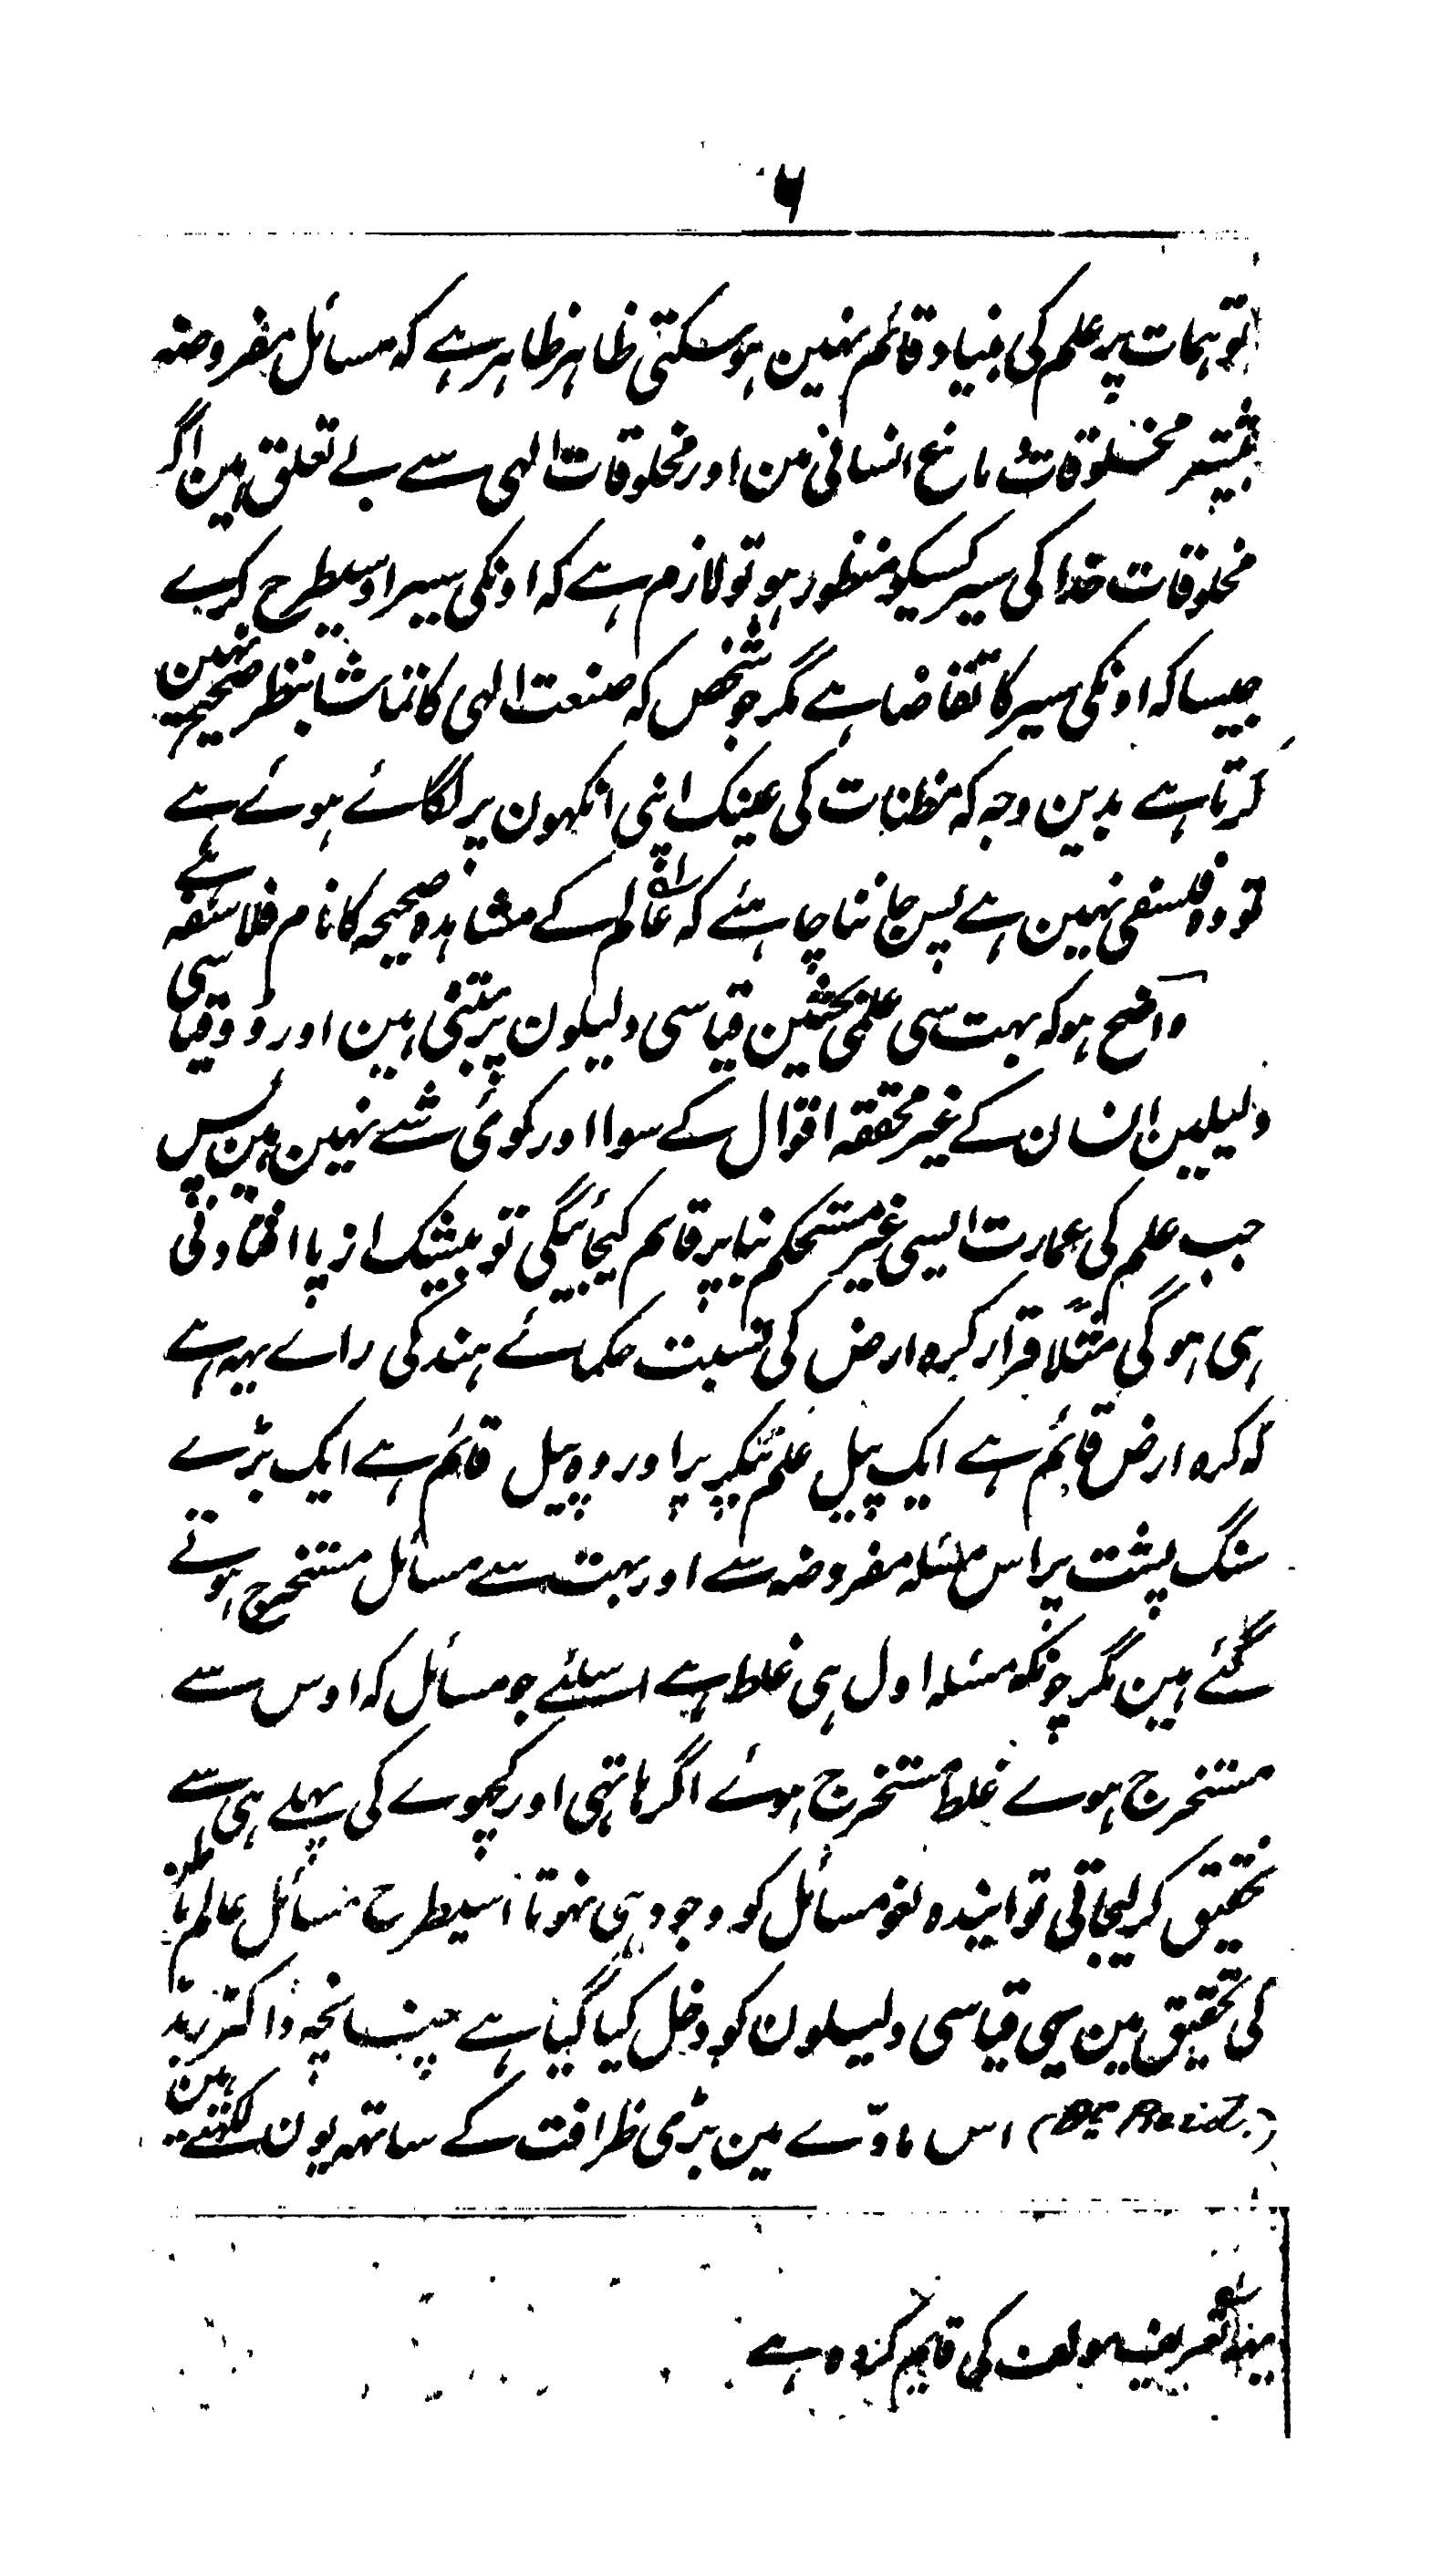 ۶
توہمات پر علم کی بنیاد قائم نہین ہو سکتی ظاہر ظاہر ہے کہ مسائل مفروضہ
بیشتر مخلوقات دماغ انسانی من اور مخلوقات الہی سے بے تعلق ہین اگر
مخلوقات خدا کی سیر کسیکو منظور ہو تو لازم ہے کہ اونکی سیر اوسیطرح کرے
جیسا کہ اونکی سیر کا تقاضا ہے مگر جو شخص کہ صنعت الہی کا تماشا بنظر صحیح نہین
کرتا ہے بدین وجہ کہ مظنات کی عینک اپنی انکہون پر لگائے ہوئے ہے
تو وہ فلسفی نہین ہے پس جاننا چاہئے کہ عالم کے مشاہدہ صحیحہ کا نام فلاسفہ ہے
واضح ہو کہ بہت سی علمی بحثین قیاسی دلیلون پر مبتنی ہین اور وہ قیاسی
دلیلین انسان کے غیر محققہ اقوال کے سوا اور کوئی شے نہین ہین پس
جب علم کی عمارت ایسی غیر مستحکم بنا پر قایم کیجائیگی تو بیشک از پا افتادنی
ہی ہو گی مثلًا قرار کرہ ارض کی نسبت حکمائے ہند کی راے یہہ ہے
کہ کرہ ارض قائم ہے ایک پیل پر اور وہ پیل قائم ہے ایک بڑے
سنگ پشت پر اس مسئلہ مفروضہ سے اور بہت سے مسائل مستخرج ہوتے
گئے ہین مگر چونکہ مسئلہ اول ہی غلط ہے اسلئے جو مسائل کہ اوس سے
مستخرج ہوے غلط مستخرج ہوئے اگر ہاتہی اور کچہوے کی پہلے ہی سے
تحقیق کر لیجاتی تو ایندہ لغو مسائل کو وجود ہی نہوتا اسیطرح مسائل عالم باطن
کی تحقیق مین بہی قیاسی دلیلون کو دخل کیا گیا ہے چنانچہ ڈاکٹر ریڈ
(Dr Reid.) اس مادّے مین بڑی ظرافت کے ساتہہ یون لکہتے ہین
یہہ تعریف مولف کی قایم کردہ ہے